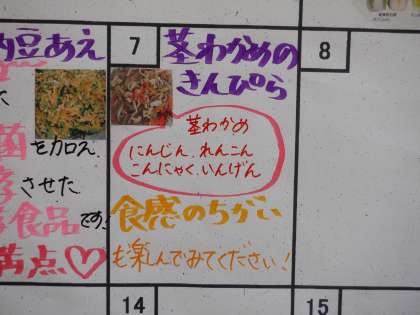 納豆あえ
を加え
菌
させた
食品です!
満点♡
7
茎わかめの
きんぴら
茎わかめ
にんじん、れんこん
こんにゃく、いんげん
食感のちがい
も楽しんでみてください!
8
14
15